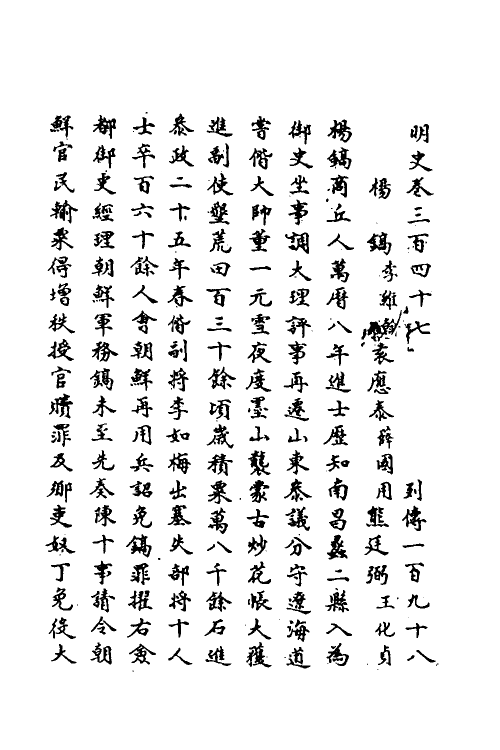 明史卷三百四十七 列傳一百九十八
楊鎬 李維翰 袁應泰 薛國用 熊廷弼 王化貞
楊鎬商丘人萬曆八年進士歷知南昌蠡二縣入為
御史坐事調大理評事再遷山東叅議分守遼海道
嘗偕大帥董一元雪夜度墨山襲蒙古炒花帳大獲
進副使墾荒田百三十餘頃歲積粟萬八千餘石進
叅政二十五年春偕副將李如梅出塞失部將十人
士卒百六十餘人會朝鮮再用兵詔免鎬罪擢右僉
都御史經理朝鮮軍務鎬未至先奏陳十事請令朝
鮮官民輸粟得增秩授官贖罪及鄉吏奴丁免役大